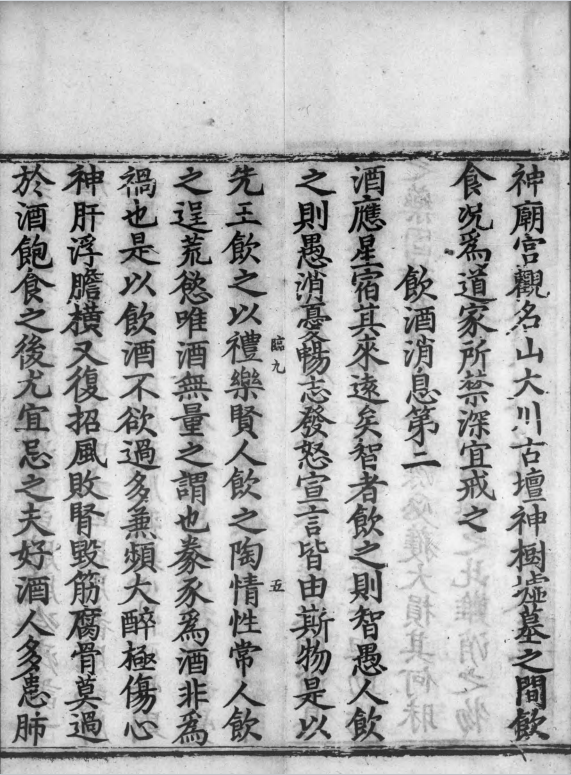 神廟宮觀名山大川古壇神樹墟墓之間飲
食况爲道家所禁深宜戒之
飲酒消息第二
酒應星宿其來遠矣智者飲之則智愚人飲
之則愚消憂暢志發怒宣言皆由斯物是以
臨九
五
先王飲之以禮樂賢人飲之陶情性常人飲
之逞荒慾唯酒無量之謂也豢豕爲酒非爲
禍也是以飲酒不欲過多兼頻大醉極傷心
神肝浮膽橫又復招風敗腎毀筋腐骨莫過
於酒飽食之後尤宜忌之夫好酒人多患肺